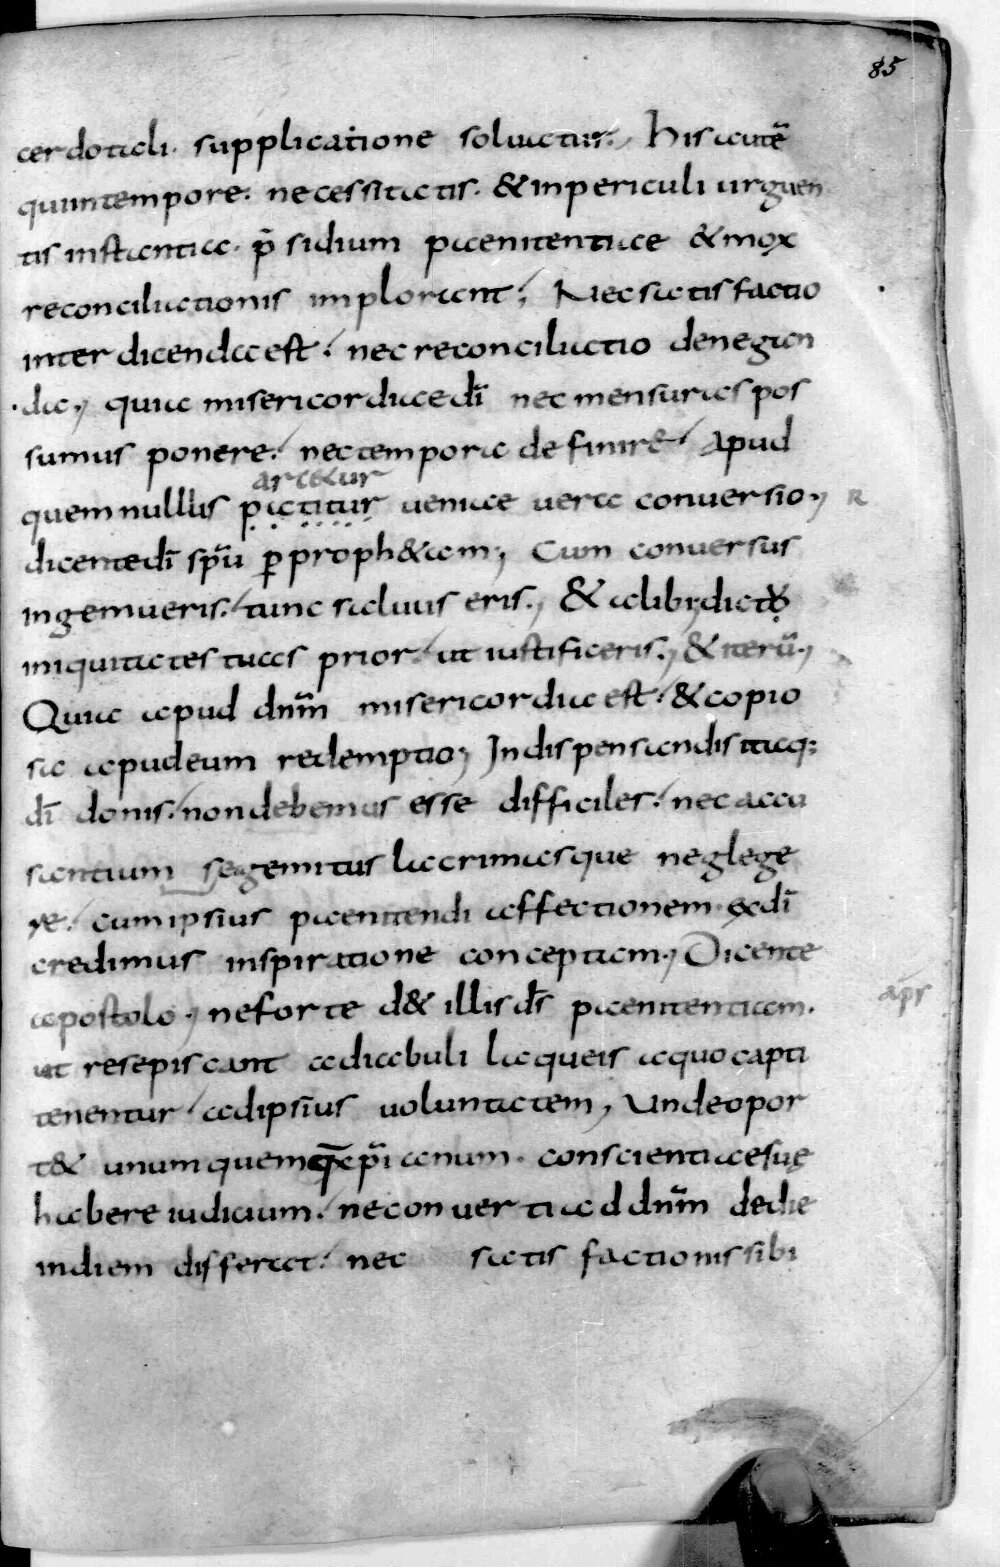 85
cerdotali. supplicatione soluatur. His autē
qui in tempore. necessitatis. & in periculi urguen
tis instantia. p̄sidium paenitentiae & mox
reconciliationis implorant; Nec satisfactio
interdicenda est. nec reconciliatio denegan
da; quia misericordiae dī nec mensuras pos
sumus ponere. nec tempora definire. Apud
arcetur
quem nullus patitur ueniae uera conuersio; R
dicente dī spū ꝑ proph&am; Cum conuersus
ingemueris. tunc saluus eris; & alibi; dic
iniquitates tuas prior. ut iustificeris; & iterū;
Quia apud dnm̄ misericordia est. & copio
sa apud eum redemptio; In dispensandis itaq;
dī donis. non debemus esse difficiles. nec accu
santium se gemitus lacrimasque neglege
re. cum ipsius paenitendi affectionem ex dī
credimus inspiratione conceptam; Dicente
apostolo; ne forte d& illis ds̄ paenitentiam. aps
ut resepiscant a diabuli laqueis a quo capti
tenentur. ad ipsius uoluntatem; Unde opor
t& unumquemq; xp̄ianum. conscientiae suę
habere iudicium. ne conuerti ad dnm̄ de die
in diem differat. nec satisfactionis sibi